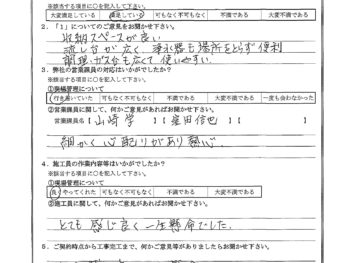 ※該当する項目に○を記入して下さい。
大変満足している 満足している 可もなく不可もなく 不満である 大変不満である
2．「1」についてのご意見をお聞かせ下さい。
収納スペースが良い
流し台が広く、浄水器も場所をとらず便利
調理ガス台も広くて使いやすい。
3．弊社の営業課員の対応はいかがでしたか？
※該当する項目に○を記入して下さい。
①現場管理について
行き届いていた 可もなく不可もなく 不満である 大変不満である 一度も会わなかった
②営業課員に関して、何かご意見があればお聞かせ下さい。
営業課員名【山崎 学】【窪田信也】【 】
細かく心配りがあり熱心
4．施工員の作業内容等はいかがでしたか？
※該当する項目に○を記入して下さい。
①現場管理について
良くやってくれた 可もなく不可もなく 不満である 大変不満である
②施工員に関して、何かご意見があればお聞かせ下さい。
とても感じ良く一生懸命でした。
5．ご契約時点から工事完工まで、何かご意見等がありましたらお聞かせ下さい。